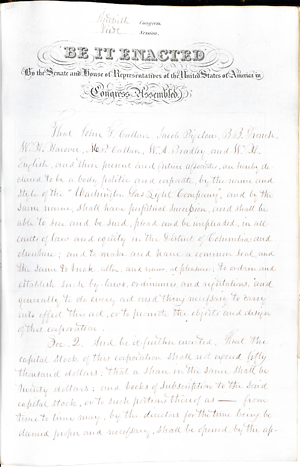 Thirtieth Congress.
First Session.
BE IT ENACTED
By the Senate and House of Representatives of the United States of America in
Congress Assembled,
That John F. Callan, Jacob Bigelow, B. B. French
W. H. Harrover, M. P. Callan, W. A. Bradley and W. H.
English, and their present and future associates, are hereby de-
clared to be a body politic and corporate, by the name and
style of the "Washington Gas Light Company," and by the
same name, shall have perpetual succession, and shall be
able to sue and be sued, plead and be impleaded, in all
courts of law and equity in the District of Columbia, and
elsewhere; and to make and have a common seal, and
the same to break, alter, and renew at pleasure; to ordain and
establish such by laws, ordinances, and regulations, and
generally to do every act and thing necessary to carry
into effect this act, or to promote the objects and design
of this corporation.
Sec. 2. And be it further enacted, That the
capital stock of this corporation shall not exceed fifty
thousand dollars; that a share in the same shall be
twenty dollars; and books of subscription to the said
capital stock, or to such portions thereof as — from
time to time may, by the directors for the time being be
deemed proper and necessary, shall be opened by the ap-